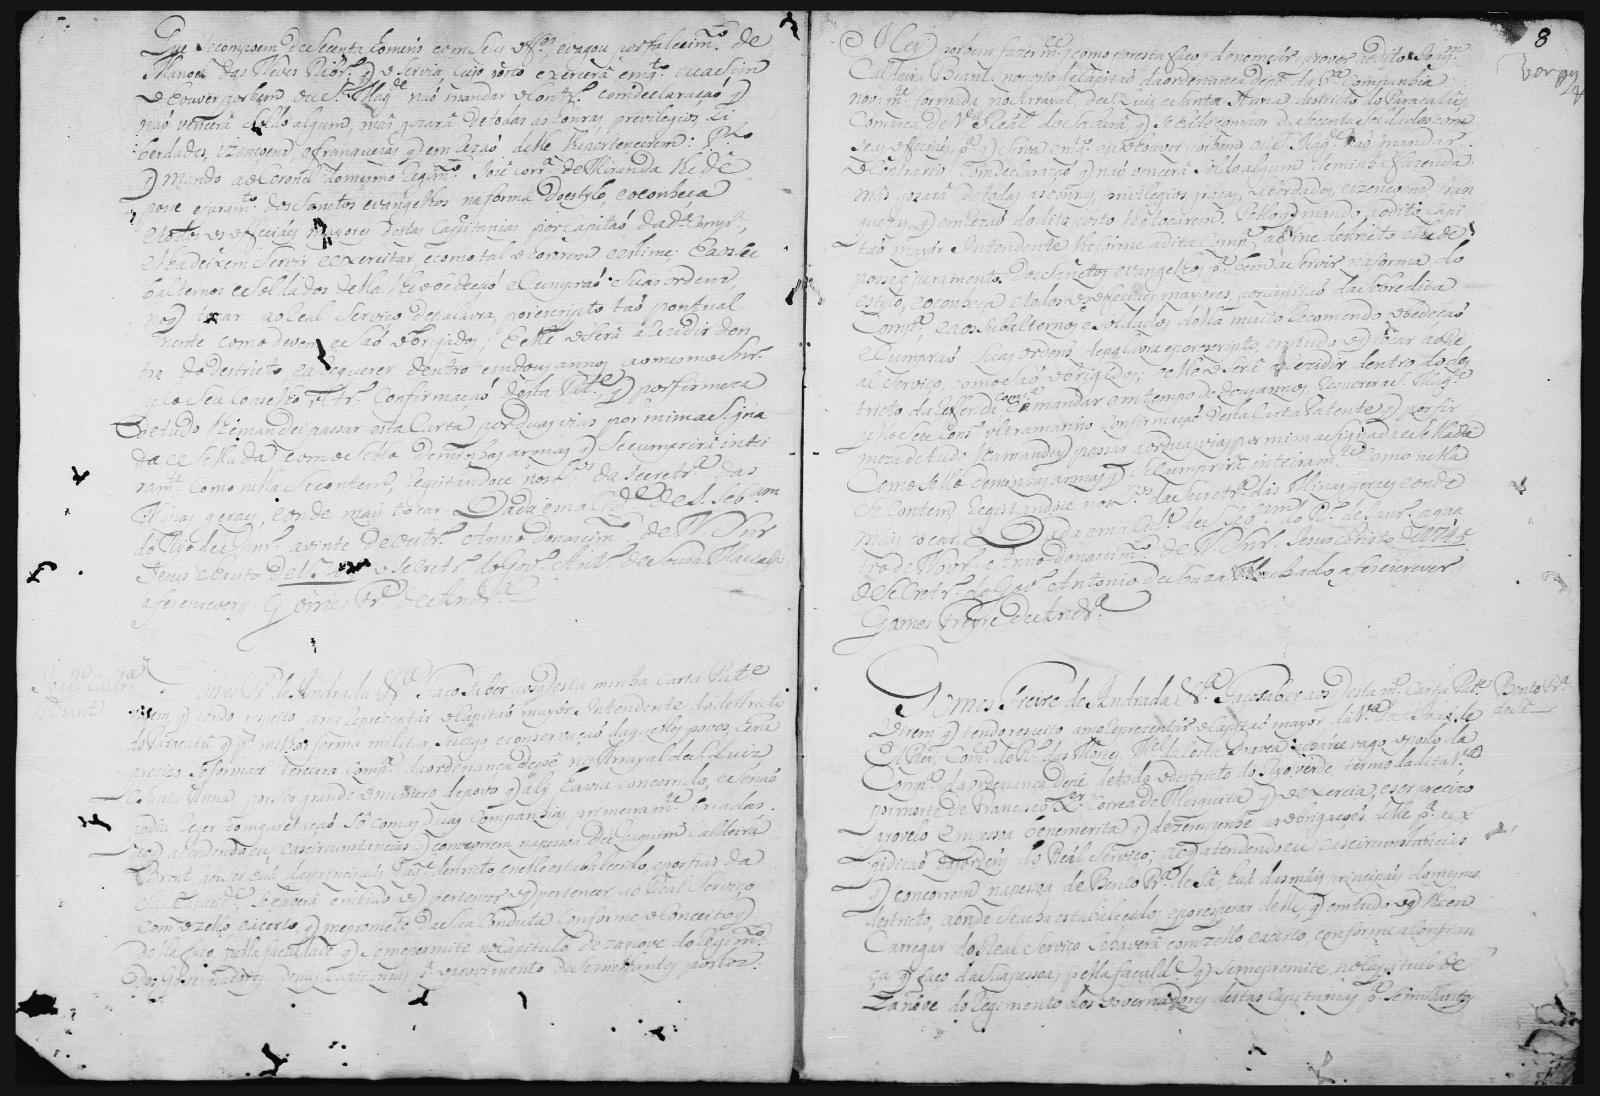 Que secompoem de secenta homens com seus off.es e vagou por falecim.to de
Manoel das Neves Ribr.o q o servia, cujo posto exercerá emq.to eu assim
o houver porbem, ou S. Mag.de naó mandar o contr.o com declaraçaó q
naó vencerá soldo algum, mas gozará de todas as honras, privilegios, Li
berdades, izençoens, e franquezas q em Razaó delle lhe pertencerem: P.lo
q mando ao Coronel do mesmo Regim.to José Corr.a de Miranda lhe dê
posse e juram.to dos Sanctos evangelhos na forma do estylo, e o conheça
e todos os officiaes mayores destas Capitanias por Capitaó da d.a Comp.a,
e lha deixem servir e exercitar e como tal o honrem e estime; E aos su
balternos e soldados della lhe obedeçaó e Cumpraó suas ordens,
no q tocar ao Real Serviço de palavra, e por escripto taó pontual
mente como devem e saó obrigados; E elle será a Rezidir den
tro do destricto, e a Requerer dentro em dous annos, ao mesmo Snr.
pelo seu Conselho Ultr.o Confirmaçaó desta Pat.e q por firmeza
de tudo lhe mandei passar esta Carta por duas vias por mim assigna
da e sellada com o sello de minhas armas q se cumprirá intei
ram.te como nella se contem, Registandoce nos L.os da Secretr.a das
Minas geraes, e onde mais tocar. Dada em a Cid.e de S. Seb.am
do Rio de Janr.o a vinte de outr.o Anno do nascim.to de N. Snr.
Jesus Christo de 17 o Secretr.o do Gov.o Ant.o de Souza Machado
a fes escrever // Gomes Fr.e de Andr.a
Joaq.m Cald.ra
Brant
Gomes Fr.e de Andrada &.a Faço saber aos q esta minha Carta Pat.e
virem, q tendo respeito ame Reprezentar o Capitaó mayor Intendente do destricto
do Paracatú q p.a milhor forma militar, socego, e conservaçaó daquelles povos, era
precizo se formace terceira Comp.a da ordenança de pé no Arrayal de S. Luiz
e Santa Anna, por ser grande o numero de povo q aly havia concorrido, e se naó
podia Reger com quietaçaó só com as duas Companhias primeiram.te Criadas.
e atendendo eu as circunstancias q concorrem na pessoa de Joaquim Caldeira
Brant por ser huá das principaes daq.le destricto e nelle estabalecido, e por fiar da
Sua q se haverá em tudo o q pertencer ao Real Serviço
com o zello, e acerto, q me promete da sua conduta Conforme o Conceito q
delle faço, pella faculdade q se me permite no Capitulo dezanove do Regim.to
dos Governadores destas Capitanias p.a o provimento de semelhantes postos:
8
Vargas
Hey por bem fazer m.ce como por esta faço, de nomear, e prover ao dito Joaq.m
Caldeira Brant no posto de Capitaó da ordenanca de pé da 3.a Companhia
novam.te formada no Arrayal de S. Luiz e Santa Anna destricto do Paracatú,
Comarca de V.a Reál do Sabará, q se hade compor de secenta soldados com
seus officiaes, p.a q sirva emq.to eu o houver por bem, ou S. Mag.de naó mandar
o Contrario: Com declaraçaó q naó vencerá soldo algum de minha fazenda
mas gozará de todas as honras, privilegios, graças, Liberdades, e izençoens, fran
quezas, q em Razaó do dito posto lhe tocarem. Pello q mando ao dito Capi
taó mayor Intendente lhe forme a dita Comp.a no destricto e lhe dê
posse e juramento dos Sanctos evangelhos p.a bem a servir na forma do
estylo, e o conheça e todos os officiaes mayores por capitaó da sobredita
Comp.a, e aos subalternos e soldados della muito Recomendo obedeçaó
e Cumpraó suas ordens, de palavra e por escripto, em tudo o q tocar ao Re
al serviço, como saó obrigados; e elle será a Rezidir dentro do des
tricto da Refferida Comp.a e mandar em tempo de dous annos, Requerer a S. Mag.e
pello seu Cons.o ultramarino Confirmaçaó desta Carta Patente q por fir
meza de tudo lhe mandey passar por duas vias por mim assignada e sellada
Com o sello de minhas armas q se Cumprirá inteiram.te como nella
se Contem, Registandoce nos L.os da Secretr.a das Minas geraes e onde
mais tocar. Dada em a Cid.e de S. Seb.am do R.o de Janr.o a qua
tro de Novr.o Anno do nascim.to de N. Snr. Jesus Christo de 1745
o Secretr.o do Gov.o Antonio de Souza Machado, a fes escrever
Gomes Freire de Andr.a
Gomes Freire de Andrada &.a Faço saber aos q esta m.a Carta Pat.e
Bento Pr.a
de Sá
virem q tendo respeito a me Reprezentar o Capitaó mayor da V.a de S. Joaó de
El Rey, Com.ca do R.o das Mortes, M.el da Costa Gouvea achárce vago o posto da
Comp.a da ordenança de pé de todo o destricto do Rio verde, termo da dita V.a
por morte de Francisco X.er Correa de Mesquita q o exercia, e ser precizo
provelo em pessoa benemerita q dezempenhe as obrigaçoés delle p.a a ex
pediçaó das ordens do Reál Serviço; a q atendendo eu e as circunstancias
q concorrem na pessoa de Bento Pr.a de Sá, huá das mais principaes do mesmo
destricto, aonde se acha estabalecido, e por esperar delle q em tudo o q lhe en
Carregar do Real Serviço se haverá com zello e acerto, conforme a Confian
ça q faço da sua pessoa, pella faculd.e q se me premite no Capitulo de
zanove do Regimento dos Governadores destas Capitanias p.a semilhantes